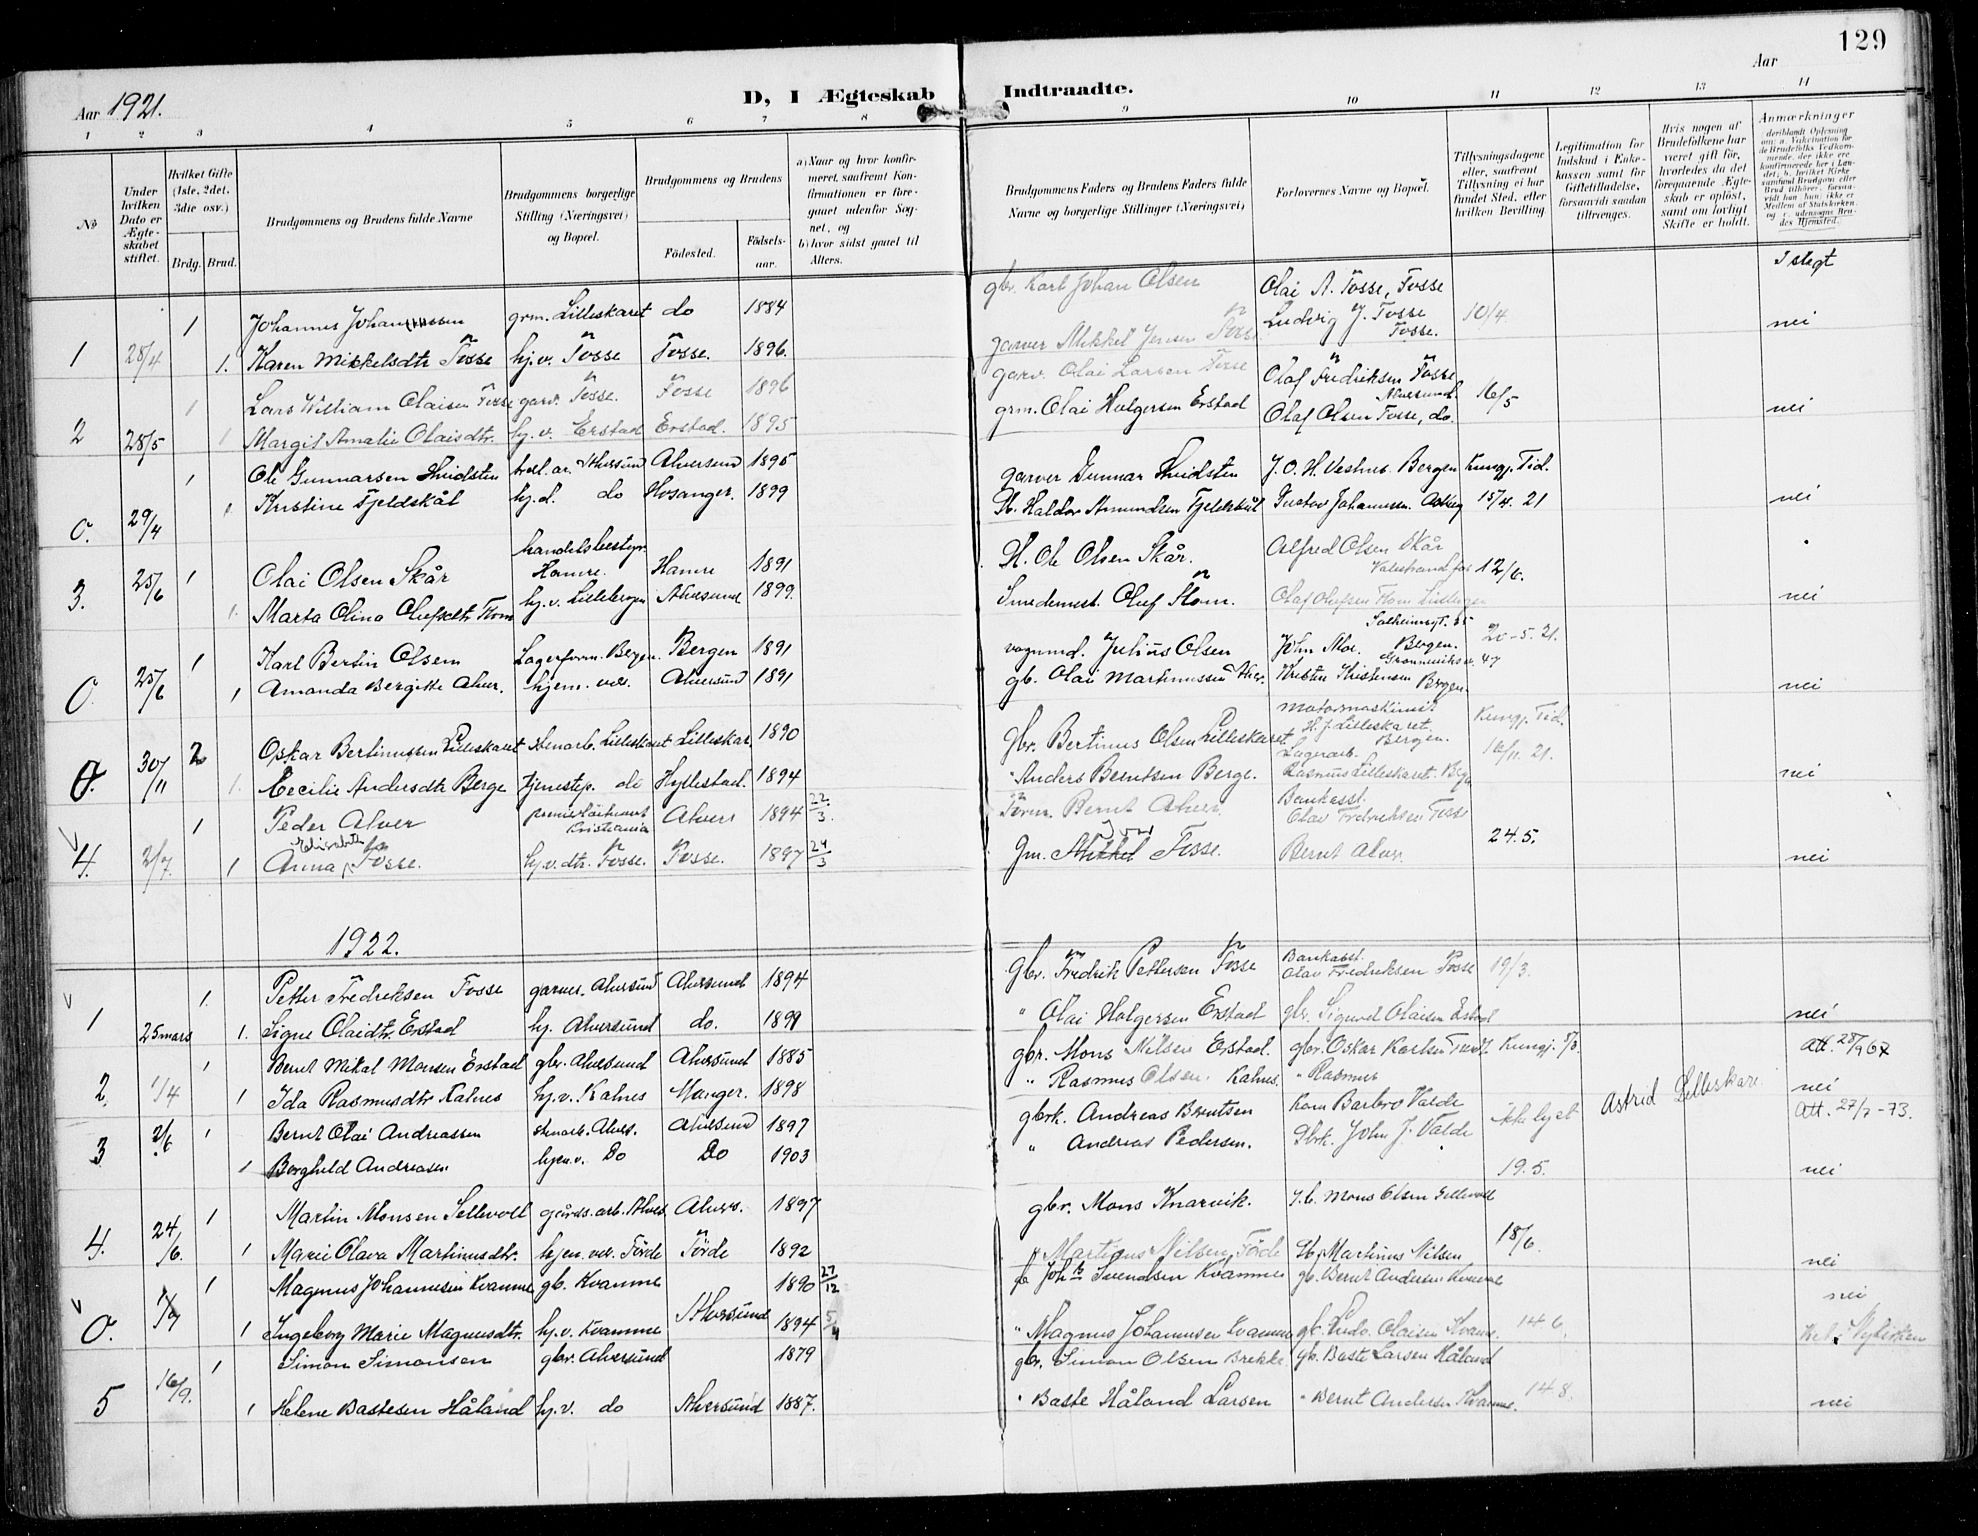 129
Aar 1921.
D, I Ægteskab Indtraadte.
Aar
1 2 3 4 5 6 7 8 9 10 11 12 13 14
No
Under hvilken Dato er Ægteskabet stiftet.
Hvilket Gifte (1ste, 2det, 3die osv.)
Brdg. Brud.
Brudgommens og Brudens fulde Navne
Brudgommens borgerlige Stilling (Næringsvei) og Bopæl.
Brudgommens og Brudens
Födested. Födselsaar.
a) Naar og hvor konfirmeret, saafremt Konfirmationen er foregaaet udenfor Sognet, og
b) hvor sidst gaaet til Alters.
Brudgommens Faders og Brudens Faders fulde Navne og borgerlige Stillinger (Næringsvei)
Forlovernes Navne og Bopæl.
Tillysningsdagene eller, saafremt Tillysning ei har fundet Sted, efter hvilken Bevilling
Legitimation for Indskud i Enkekassen samt for Giftetilladelse, forsaavidt saadan tiltrænges.
Hvis nogen af Brudefolkene har været gift för, hvorledes da det foregaaende Ægteskab er oplöst, samt om lovligt Skifte er holdt.
Anmærkninger
I slegt
1 28/4 1 Johannes Johannessen grm. Lilleskaret do 1884 gbr. Karl Johan Olsen Olai A. Fosse, Fosse 10/4
1. Karen Mikkelsdtr Fosse hj.v. Fosse Fosse. 1896. garver Mikkel Jensen Fosse Ludvig J. Fosse Fosse. nei
2 28/5 1 Lars William Olaisen Fosse garv. Fosse. Fosse 1896 garv. Olai Larsen Fosse Olaf Fredriksen Fosse Alversund. 16/5
1 Margit Amalie Olaisdtr. hj.v. Erstad Erstad. 1895 grm. Olai Holgersen Erstad Olaf Olsen Fosse, do. nei
0. 29/4 1 Ole Gunnarsen Hvidsten Alversund Alversund 1895 garver Gunnar Hvidsten J. O. H. Bergen Kungj. Tid.
1 Kristine Fjeldskål hj.d. do Hosanger. 1899 Haldor Amundsen Fjeldskål Gustav Johannessen 15/4. 21 nei
3. 25/6 1 Olai Olsen Skår handelsbestyr. Hamre. Hamre 1891 H. Ole Olsen Skår. Alfred Olsen Skår 12/6.
1. Marta Olina Olufsdtr Hom hj.v. Lillebergen Alversund 1899. Smedemest. Oluf Hom. Olaf Olufsen Hom nei
0. 25/6 1 Karl Bertin Olsen Lagerform. Bergen. Bergen 1891 vognmd. Julius Olsen John Moe. Bergen. 20-5. 21.
1 Amanda Bergitte Alver. hjem. ved. Alversund 1891 gb. Olai Martinussen Alver. Kristen Kristensen Bergen. 47 nei
0. 30/11 2 Oskar Bertinussen Lilleskaret stenarb. Lilleskaret Lilleskar. 1890 gbr. Bertinus Olsen Lilleskaret motormaskinist H. J. Lilleskaret. Bergen. Kungj. Tid.
1. Cecilie Andersdtr Berge tjenestep. do Hyllestad. 1894 " Anders Berntsen Berge. Lagerarb. Rasmus Lilleskaret. 16/11. 21. nei
4. 2/7. 1 Peder Alver premierløitnant Kristiania Alvers 1894 22/3. Bernt Alver. Bankasst. Olav Fredriksen Fosse
1 Anna Elisabeth Fosse. hj.v. dtr. Fosse. Fosse. 1897 24/3 Gm. Mikkel Fosse. Bernt Alver. 24 5. nei
1922.
1 25 mars 1. Petter Fredriksen Fosse garver. Alversund Alversund 1894 gbr. Fredrik Pettersen Fosse Bankasst. Olav Fredriksen Fosse 19/3.
1. Signe Olaidtr. Erstad hj. Alversund do. 1899 " Olai Holgersen Erstad gbr. Sigurd Olaisen Erstad nei
2. 1/4 1 Bernt Mikal Monsen Erstad gbr. Alversund Alversund 1885 gbr. Mons Nilsen Erstad. gbr. Oskar Karlsen Kungj. Att. 28/9 67
1 Ida Rasmusdtr Kalnes hj.v. Kalnes Manger. 1898 " Rasmus Olsen. Kalnes. " Rasmus nei
3 2/6 1 Bernt Olai Andreassen stenarb. Alvers. Alversund 1897 gbrk. Andreas Berntsen Kone Barbro Valde ikke lyst Astrid Lilleskare Att. 27/7-73.
1 Borghild Andreasen hjem.v. Do Do 1903 " Andreas Pedersen. Gbrk. John J. Valde 19. 5. nei
4. 24/6. 1 Martin Monsen Sellevolt gårds. arb. Alvers. Alvers. 1897 gbr. Mons Knarvik. Mons Olsen Sellevold
1 Marie Olava Martinusdtr. hjem. ved. Förde Förde 1892 Martinus Nilsen Förde Gb. Martinus Nilsen 18/6. nei
0. 1/7 1 Magnus Johannesen Kvamme gb. Kvamme Alversund 1890 27/12 Johs Svendsen Kvamme gb. Bernt Andersen Kvamme nei
1 Ingeborg Marie Magnusdtr. hj.v. Kvamme 1894 5/4 " Magnus Johannesen Kvamme gb. Ludv. Olaisen Kvamm. 14 6. Nykirken
5 16/9. 1 Simon Simonsen gbr. Alversund 1879 gbr. Simon Olsen Brekke. gb. Baste Larsen Håland
1 Helene Bastesen Håland hj.v. do Alversund 1887. " Baste Håland Larsen " Bernt Andersen Kvamme. 14 8. nei